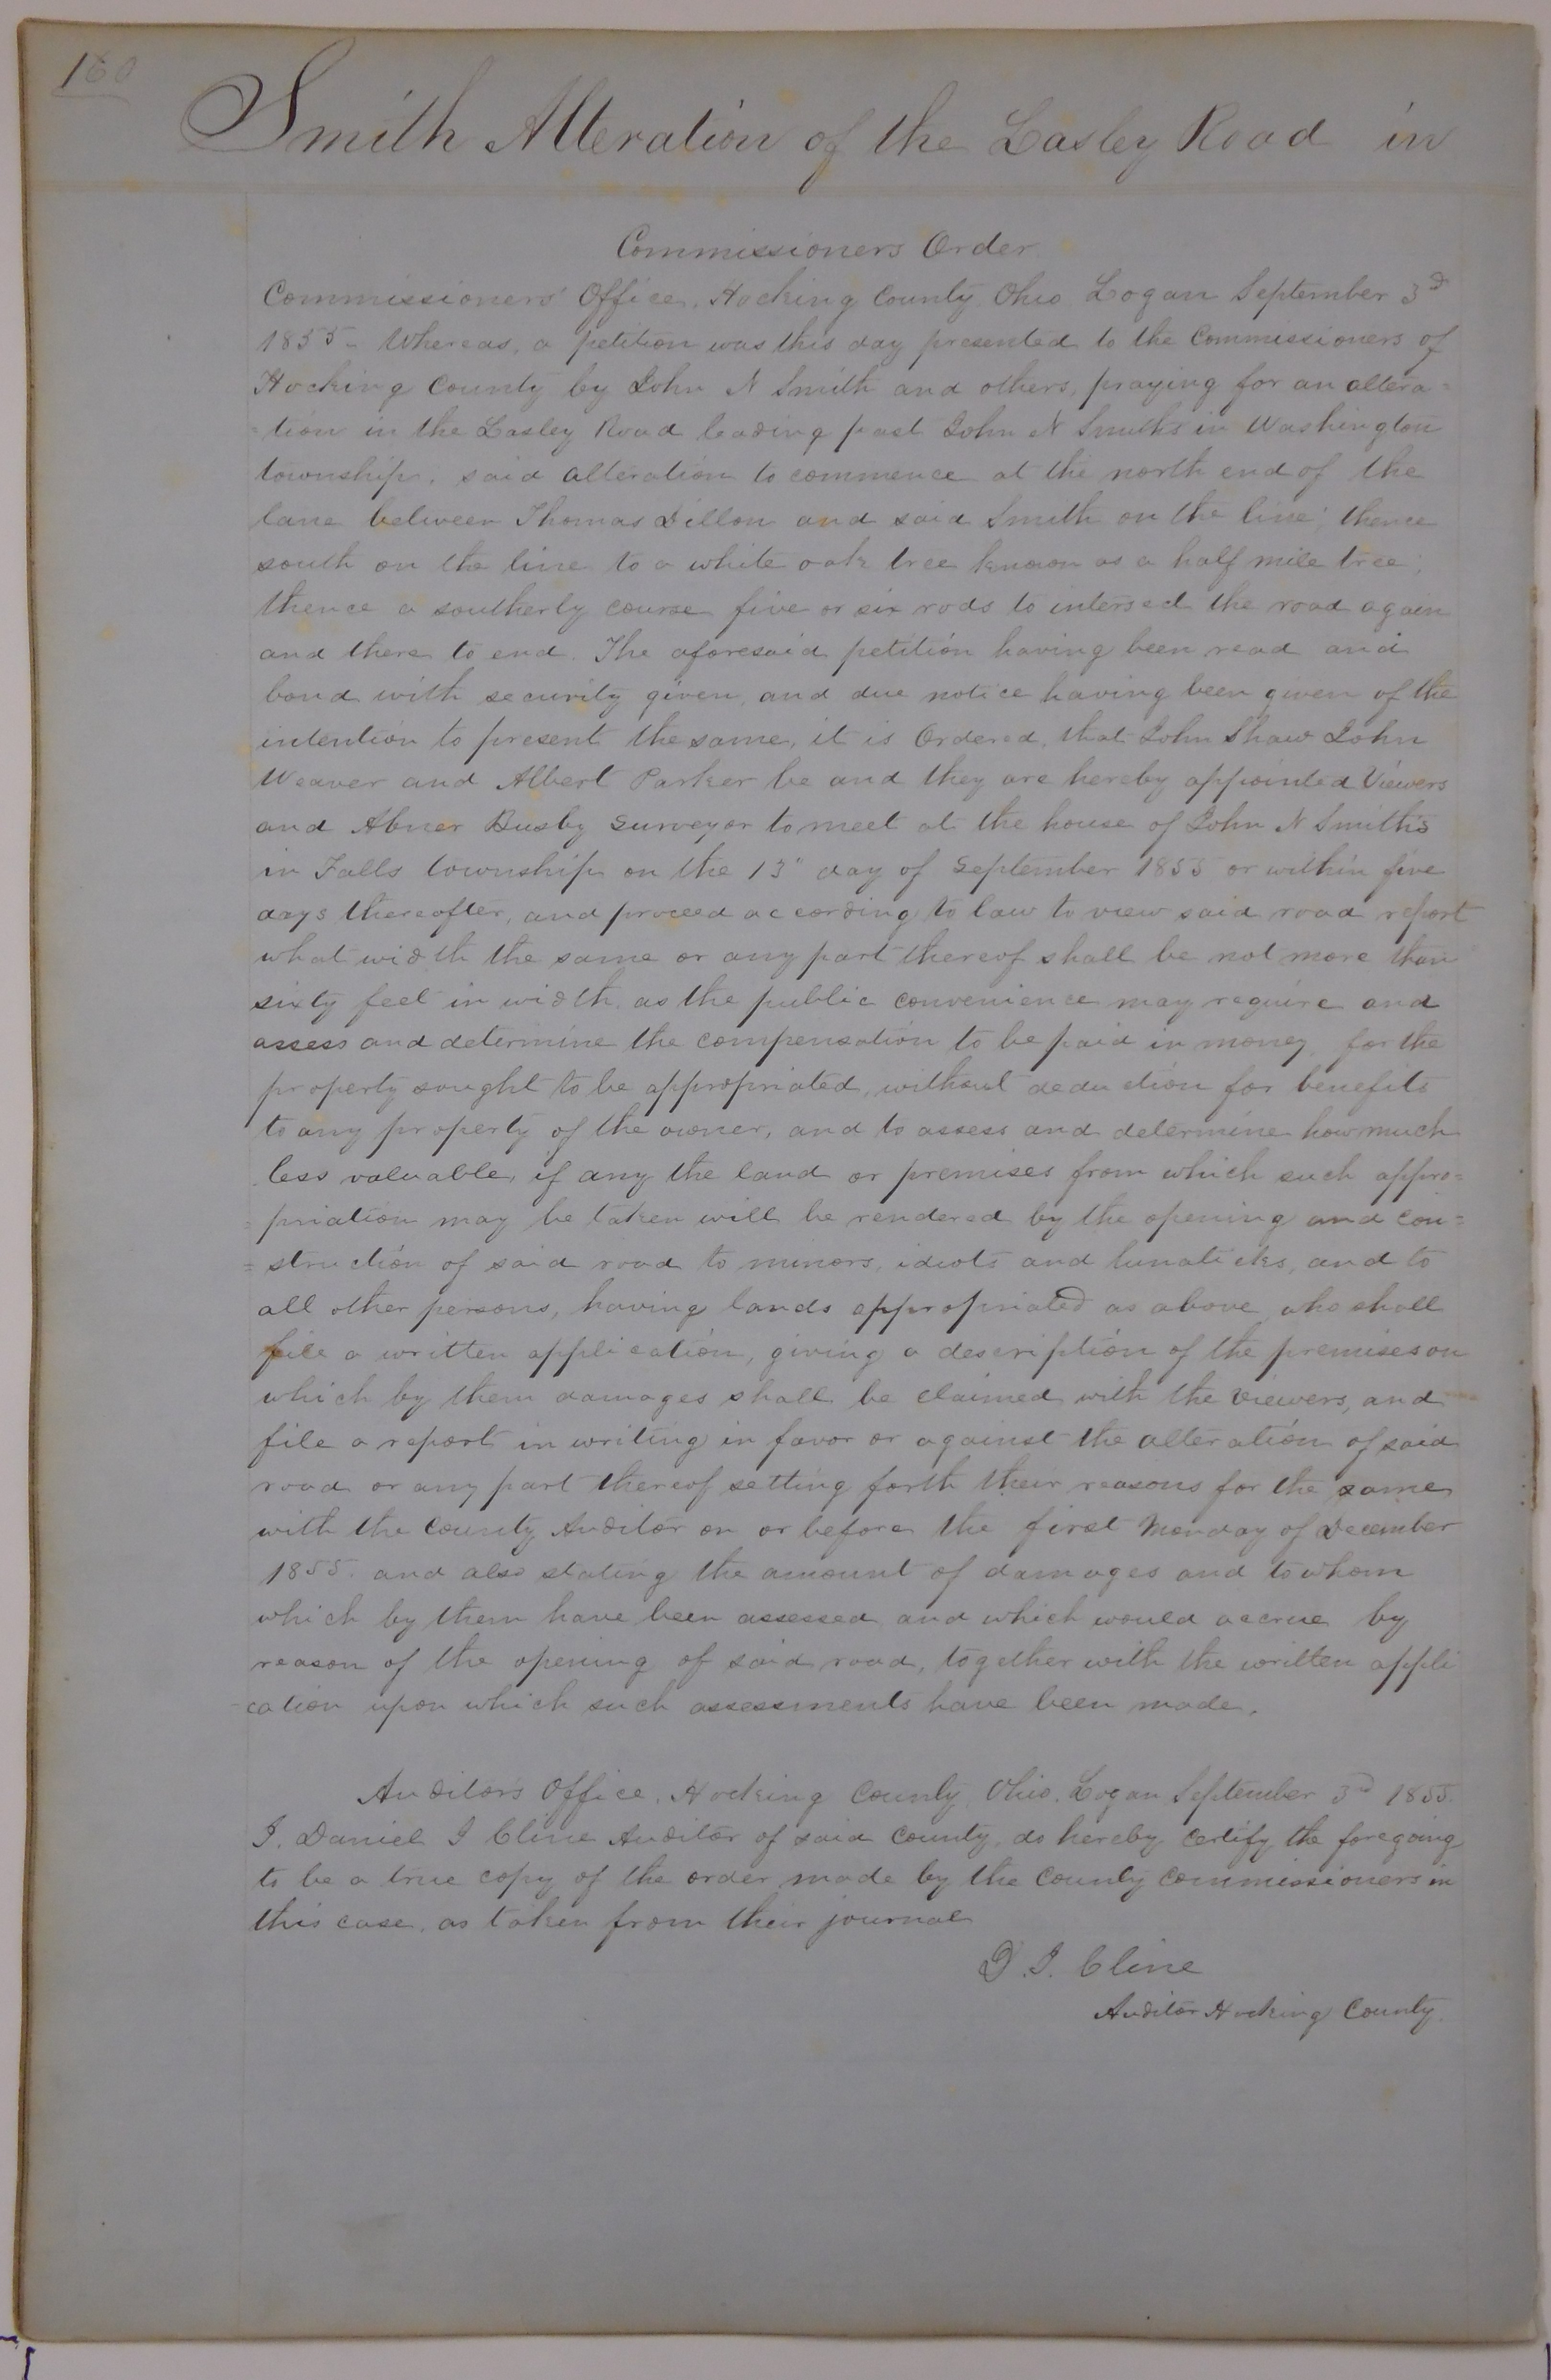 160
Smith Alteration of the Lasley Road in
Commissioners Order
Commissioners' Office, Hocking County Ohio Logan September 3d
1855 - Whereas, a petition was this day presented to the Commissioners of
Hocking County by John N Smith and others, praying for an altera=
=tion in the Lasley Road leading past John N Smith's in Washington
township, said alteration to commence at the north end of the
lane between Thomas Dillon and said Smith on the line; thence
south on the line to a white oak tree known as a half mile tree;
thence a southerly course five or six rods to intersect the road again
and there to end. The aforesaid petition having been read and
bond with security given, and due notice having been given of the
intention to present the same, it is Ordered, that John Shaw John
Weaver and Albert Parker be and they are hereby appointed Viewers
and Abner Busby Surveyor to meet at the house of John N Smith's
in Falls township on the 13" day of September 1855 or within five
days thereafter, and proceed according to law to view said road report
what width the same or any part thereof shall be not more than
sixty feet in width, as the public convenience may require and
assess and determine the compensation to be paid in money, for the
property sought to be appropriated, without deduction for benefits
to any property of the owner, and to assess and determine how much
less valuable, if any the land or premises from which such appro=
=priation may be taken will be rendered by the opening and con=
=struction of said road to minors, idiots and lunaticks, and to
all other persons, having lands appropriated as above, who shall
file a written application, giving a description of the premises on
which by them damages shall be claimed with the Viewers, and
file a report in writing in favor or against the alteration of said
road or any part thereof setting forth their reasons for the same
with the County Auditor on or before the first Monday of December
1855. and also stating the amount of damages and to whom
which by them have been assessed and which would accrue by
reason of the opening of said road, together with the written appli
-cation upon which such assessments have been made.
Auditor's Office, Hocking County, Ohio, Logan September 3rd 1855.
I, Daniel I Cline Auditor of said County, do hereby certify the foregoing
to be a true copy of the order made by the County Commissioners in
this case, as taken from their journal
D. I. Cline
Auditor Hocking County.